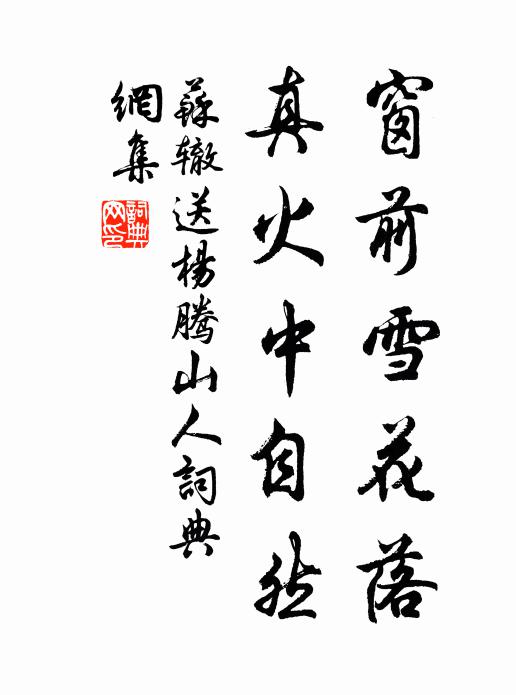 窗前雪花落
真火中自然
蘇辙送楊騰山人詞典
網集
詞典
网印